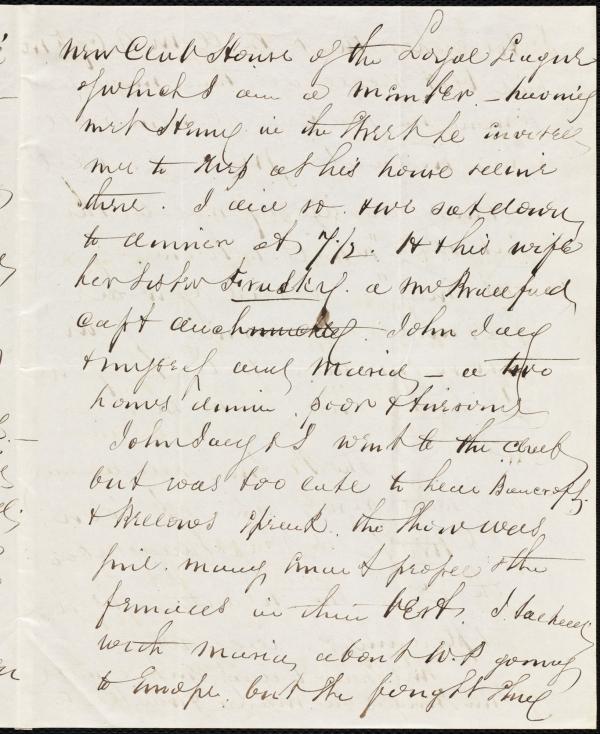 new Club House of the Loyal League
of which I am a member. – having
met Henry in the Street he invited
me to stop at his house
there. I did so & we sat down
to dinner at 7 1/2. H & his wife
her sister a Mr Bradford,
Capt John Jay
& myself and Maria – a two
hours dinner. poor & tiresome
John Jay & I went to the club
but was too late to hear Bancroft
& Bellows speak. the Show was
fine. many smart people & the
females in their best. I talked
with Maria, about W.P. going
to Europe. but she fought shy